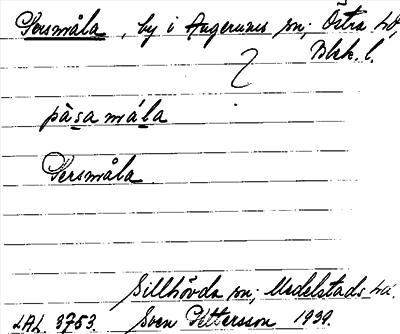 Persmåla, by i Augerums sn; Östra hd,
Blek. l.
pàsamála
Persmåla.
Sillhövda sn; Medelstads hd.
LAL. 3753. Sven Pettersson 1939.